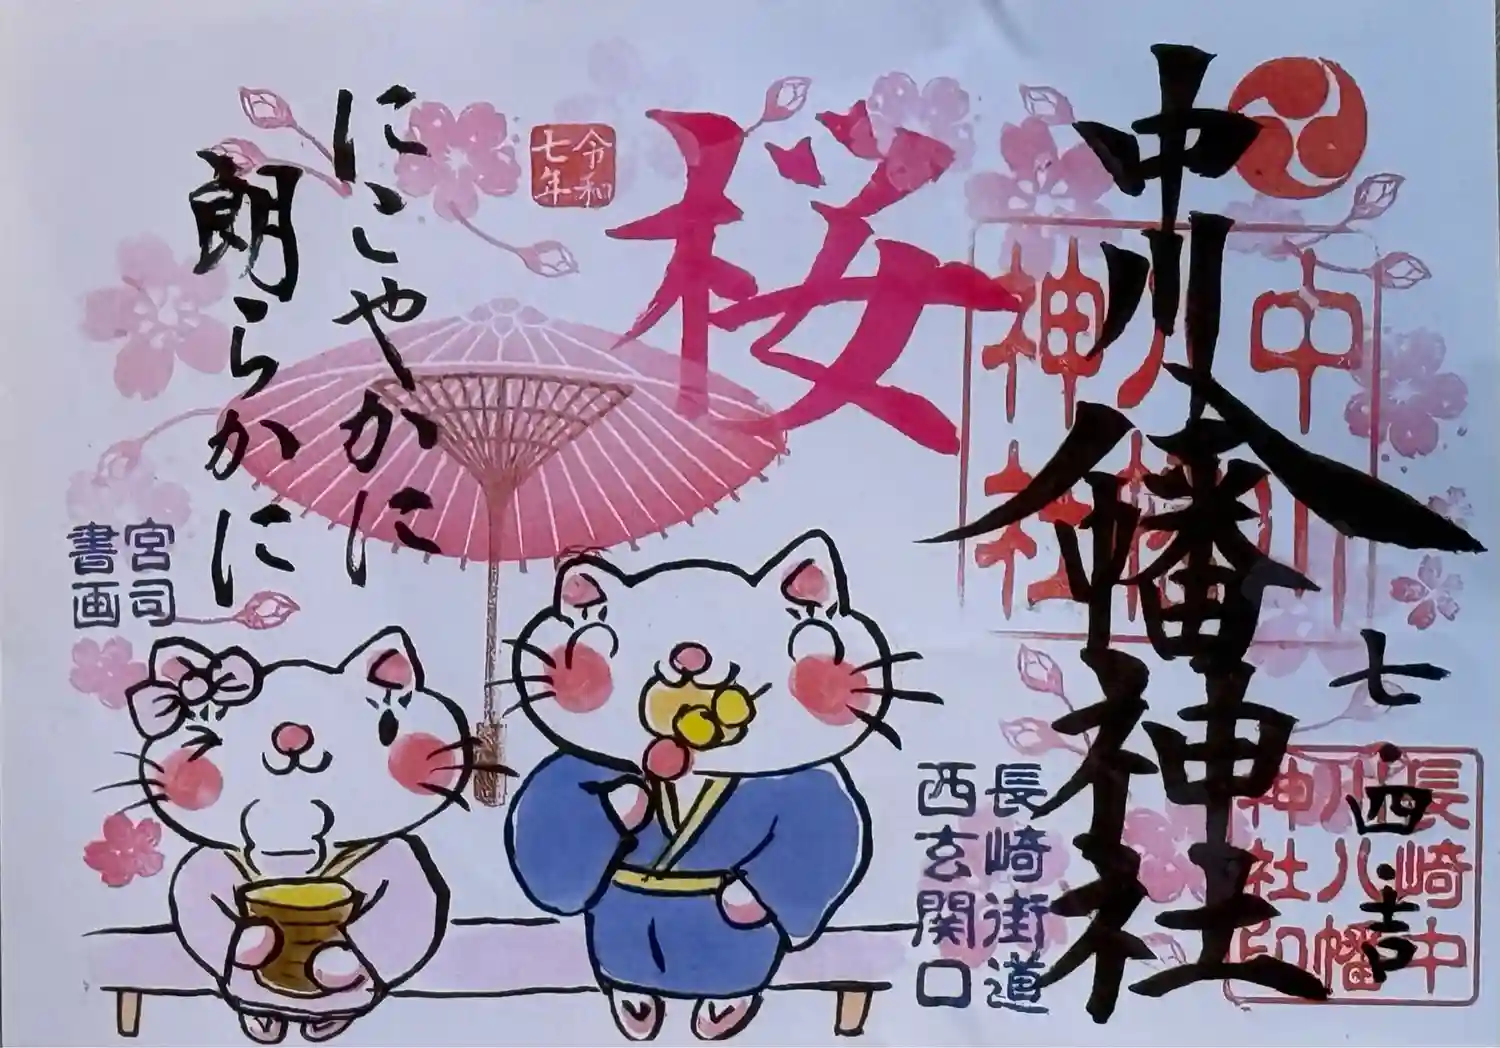 中川八幡神社
中川
八幡
神社
七・四・吉
長崎中
川八幡
神社印
長崎街道
西玄関口
桜
令和
七年
にこやかに
朗らかに
宮司
書画